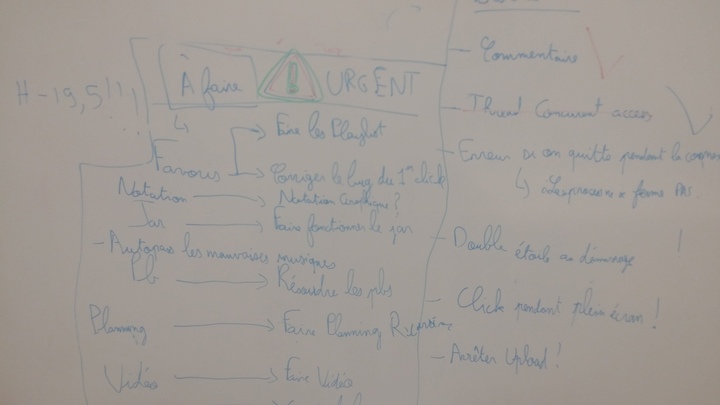 H-19,5!!!
À faire ! URGENT
Favoris
Faire les Playlist
Corriger le bug du 1er click
Notation → Notation Graphique ?
Jar → Faire fonctionner le jar
- Autopass les mauvaises musiques
Pb → Résoudre les pbs
Planning → Faire Planning
Vidéo → Faire Vidéo
- Commentaire
- Thread Concurrent access
- Erreur si on quitte pendant la
↳ ferme PAS.
- Double étoile au démarrage !
- Click pendant plein écran !
- Arrêter Upload !